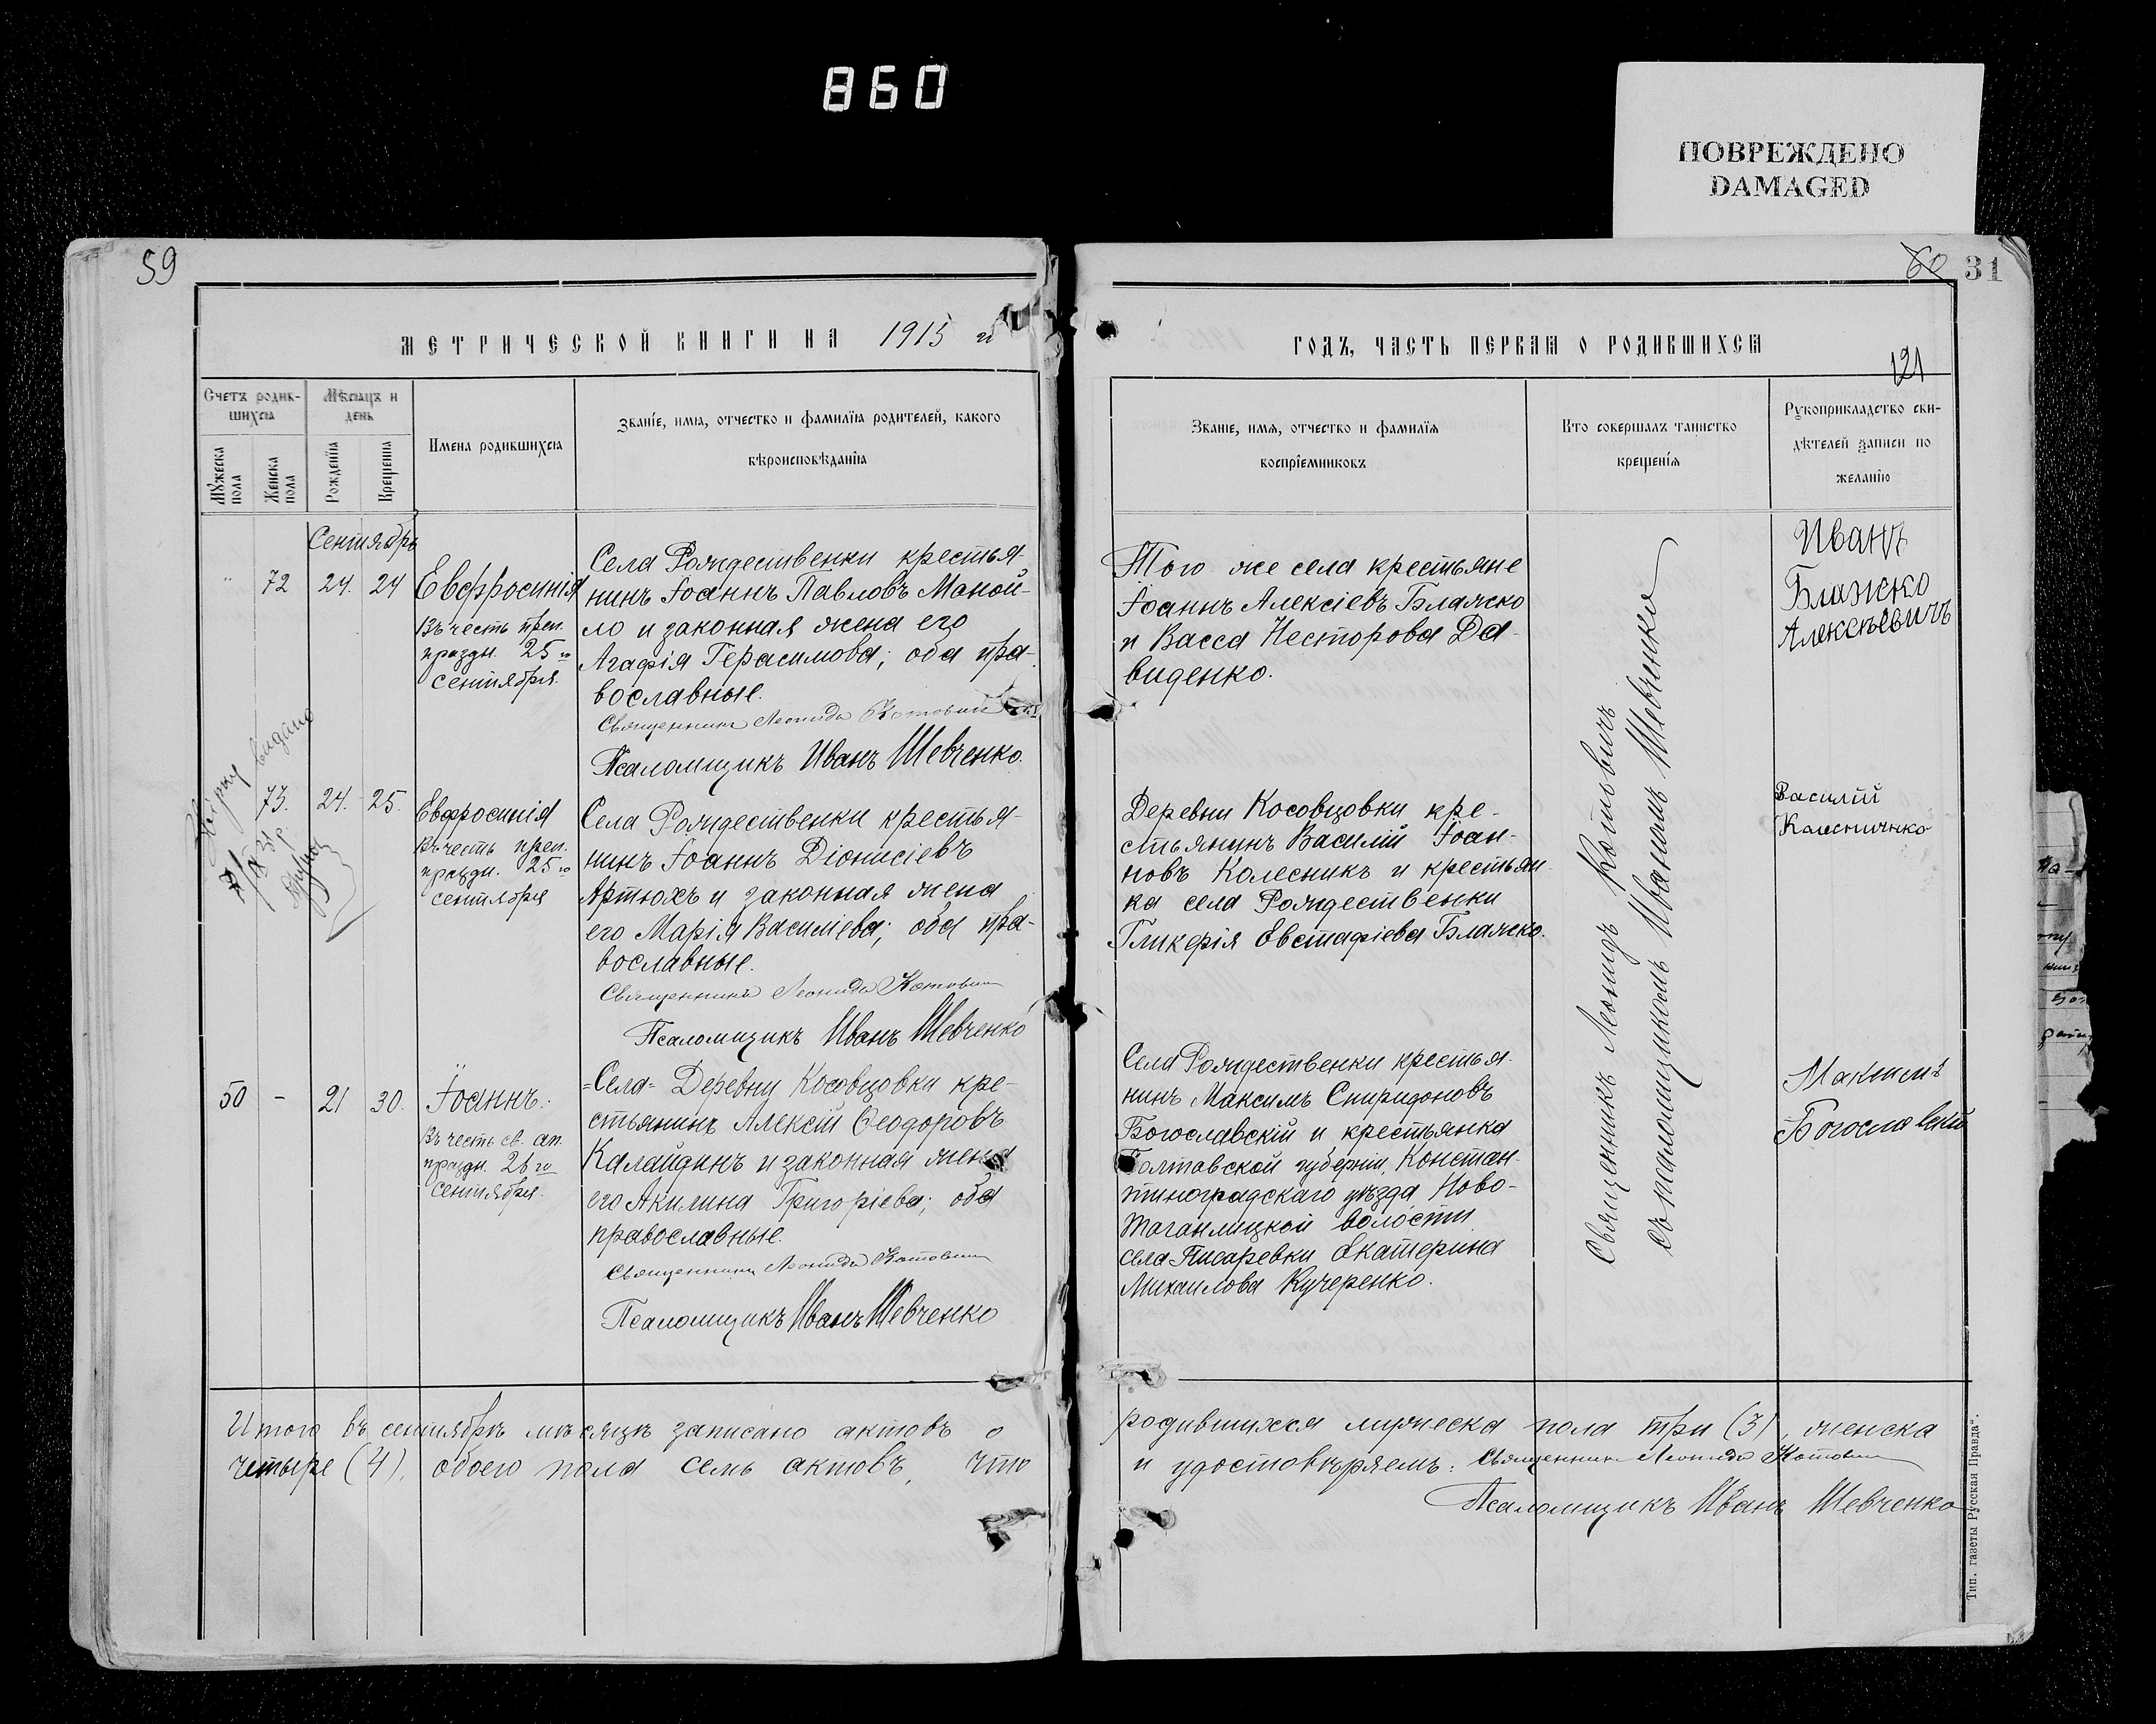 860
ПОВРЕЖДЕНО
DAMAGED
59
МЕТРИЧЕСКОЙ КНИГИ НА 1915 й
Счетъ родив-
шихся
Мѣсяцъ и
день
Имена родившихся
Званіе, имя, отчество и фамилія родителей, какого
вѣроисповѣданія
Мужеска
пола
Женска
пола
Рожденія
Крещенія
Сентябрь
" 72 24. 24 Евфросинія
Въ честь преп.
праздн. 25 го
сентября.
Села Рождественки крестья-
нинъ Іоаннъ Павловъ Маной-
ло и законная жена его
Агафія Герасимова; оба пра-
вославные.
Священникъ Леонидъ Котовичъ
Псаломщикъ Иванъ Шевченко.
видано
73. 24. 25. Евфросинія
Въ честь преп.
праздн. 25 го
сентября
Села Рождественки крестья-
нинъ Іоаннъ Діонисіевъ
Артюхъ и законная жена
его Марія Василіева; оба пра-
вославные.
Священникъ Леонидъ Котовичъ
Псаломщикъ Иванъ Шевченко
50 - 21 30. Іоаннъ.
Въ честь св. ап.
праздн. 26 го
сентября.
=Села= Деревни Косовцовки кре-
стьянинъ Алексій Ѳеодоровъ
Калайдинъ и законная жена
его Акилина Григоріева; оба
православные.
Священникъ Леонидъ Котовичъ
Псаломщикъ Иванъ Шевченко
Итого въ сентябрѣ мѣсяцѣ записано актовъ о
четыре (4), обоего пола семь актовъ, что
60 31
ГОДЪ, ЧАСТЬ ПЕРВАЯ О РОДИВШИХСЯ
121
Званіе, имя, отчество и фамилія
воспріемниковъ
Кто совершалъ таинство
крещенія
Рукоприкладство сви-
дѣтелей записи по
желанію
Того же села крестьяне
Іоаннъ Алексіевъ Блажско
и Васса Несторова Да-
виденко.
Иванъ
Блажско
Алексѣевичъ
Деревни Косовцовки кре-
стьянинъ Василій Іоан-
новъ Колесникъ и крестьян-
ка села Рождественки
Гликерія Евстафіева Блажско.
Василій
Села Рождественки крестья-
нинъ Максимъ Спиридоновъ
Богославскій и крестьянка
Полтавской губерніи, Констан-
тиноградскаго уѣзда Ново-
волости
села Писаревки Екатерина
Михаилова Кучеренко.
Максимъ
Богославскій
Священникъ Леонидъ Котовичъ
съ псаломщикомъ Иваномъ Шевченко
родившихся мужеска пола три (3), женска
и удостовѣряемъ: Священникъ Леонидъ Котовичъ
Псаломщикъ Иванъ Шевченко
Тип. газеты Русская Правда".